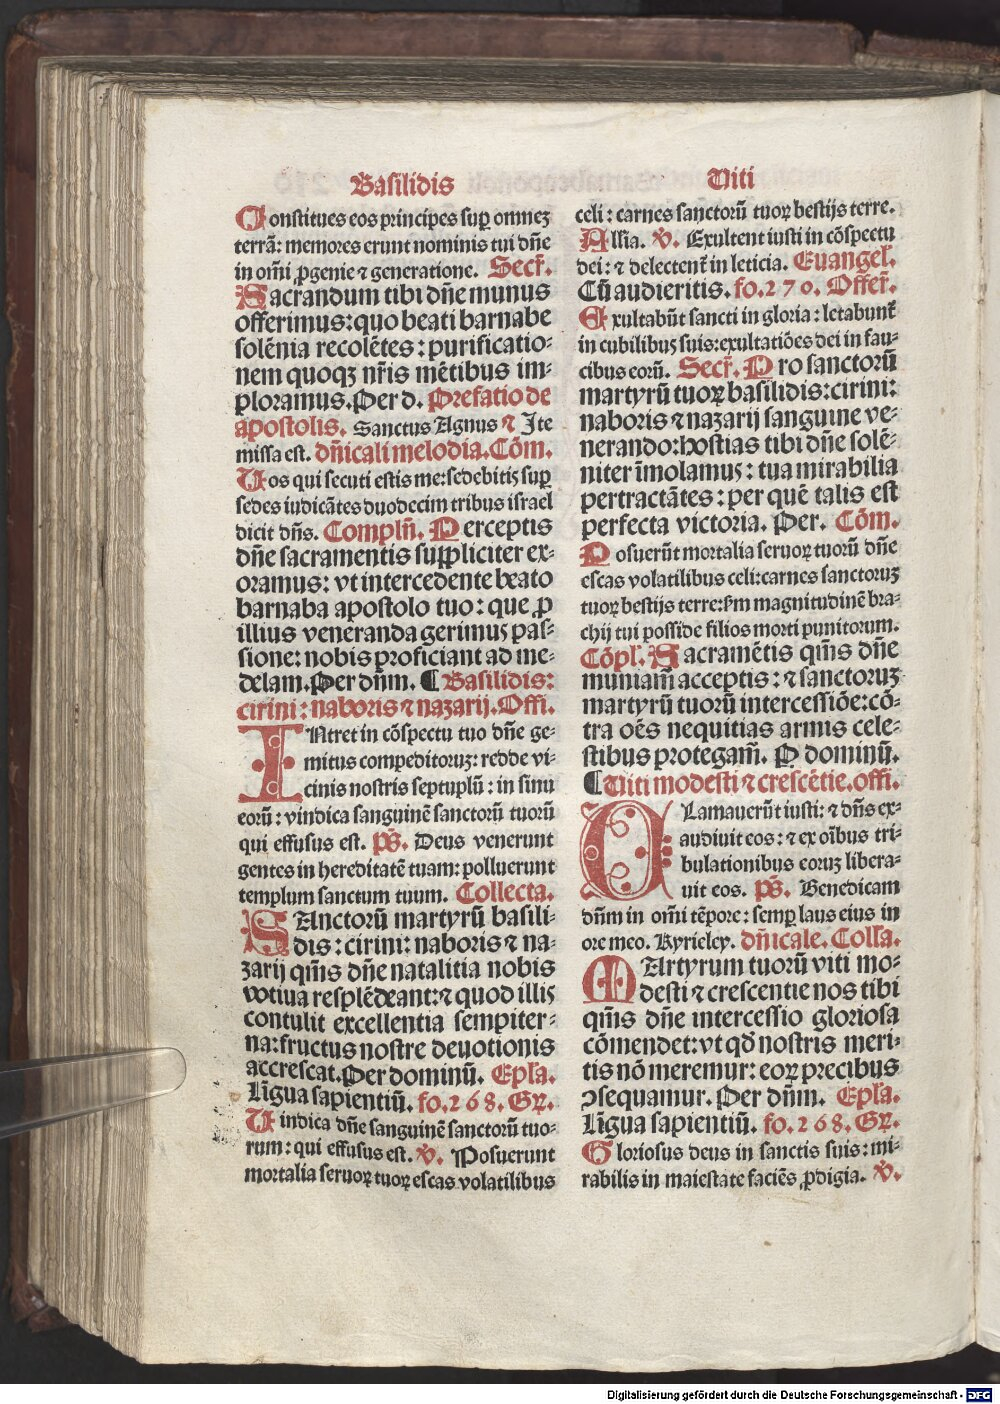 Basilidis
Constitues eos principes suꝑ omneꝫ
terrã: memores erunt nominis tui dñe
in om̃i ꝓgenie ⁊ generatione. Secr̃.
Sacrandum tibi dñe munus
offerimus: quo beati barnabe
solẽnia recolẽtes: purificatio⸗
nem quoqꝫ nr̃is mẽtibus im⸗
ploramus. Per d. Prefatio de
apostolis. Sanctus Agnus ⁊ Ite
missa est. dñicali melodia. Cõm.
Vos qui secuti estis me: sedebitis suꝑ
sedes iudicãtes duodecim tribus israel
dicit dñs. Complñ. Perceptis
dñe sacramentis suppliciter ex⸗
oramus: vt intercedente beato
barnaba apostolo tuo: que ꝓ
illius veneranda gerimus pas⸗
sione: nobis proficiant ad me⸗
delam. Per dñm. ¶ Basilidis:
cirini: naboris ⁊ nazarij. Offi.
INtret in cõspectu tuo dñe ge⸗
mitus compeditoruꝫ: redde vi⸗
cinis nostris septuplũ: in sinu
eorũ: vindica sanguinẽ sanctorũ tuorũ
qui effusus est. p̃s. Deus venerunt
gentes in hereditatẽ tuam: polluerunt
templum sanctum tuum. Collecta.
SAnctorũ martyrũ basili⸗
dis: cirini: naboris ⁊ na⸗
zarij qm̃s dñe natalitia nobis
votiua resplẽdeant: ⁊ quod illis
contulit excellentia sempiter⸗
na: fructus nostre deuotionis
accrescat. Per dominũ. Epl̃a.
Lĩgua sapientiũ. fo. 268. Gꝶ.
Vindica dñe sanguinẽ sanctorũ tuo⸗
rum: qui effusus est. ꝟ. Posuerunt
mortalia seruoꝝ tuoꝝ escas volatilibus
Viti
celi: carnes sanctorũ tuoꝝ bestijs terre.
Allia. ꝟ. Exultent iusti in cõspectu
dei: ⁊ delectent᷑ in leticia. Euangel̃.
Cũ audieritis. fo. 270. Offer̃.
Exultabũt sancti in gloria: letabunt᷑
in cubilibus suis: exultatiões dei in fau⸗
cibus eorũ. Secr̃. Pro sanctorũ
martyrũ tuoꝝ basilidis: cirini:
naboris ⁊ nazarij sanguine ve⸗
nerando: hostias tibi dñe solẽ⸗
niter ĩmolamus: tua mirabilia
pertractãtes: per quẽ talis est
perfecta victoria. Per. Cõm.
Posuerũt mortalia seruoꝝ tuorũ dñe
escas volatilibus celi: carnes sanctoruꝫ
tuoꝝ bestijs terre: sm̃ magnitudinẽ bra⸗
chij tui posside filios morti punitorum.
Cõpl̃. Sacramẽtis qm̃s dñe
muniam᷑ acceptis: ⁊ sanctoruꝫ
martyrũ tuorũ intercessiõe: cõ⸗
tra oẽs nequitias armis cele⸗
stibus protegam᷑. P dominũ.
¶ Viti modesti ⁊ crescẽtie. offi.
CLamauerũt iusti: ⁊ dñs ex⸗
audiuit eos: ⁊ ex oĩbus tri⸗
bulationibus eoruꝫ libera⸗
uit eos. p̃s. Benedicam
dñm in om̃i tẽpore: semꝑ laus eius in
ore meo. Kyrieley. dñicale. Coll̃a.
MArtyrum tuorũ viti mo⸗
desti ⁊ crescentie nos tibi
qm̃s dñe intercessio gloriosa
cõmendet: vt qď nostris meri⸗
tis nõ meremur: eoꝝ precibus
ꝯsequamur. Per dñm. Epl̃a.
Lĩgua sapientiũ. fo. 268. Gꝶ.
Gloriosus deus in sanctis suis: mi⸗
rabilis in maiestate faciẽs ꝓdigia. ꝟ.
Digitalisierung gefördert durch die Deutsche Forschungsgemeinschaft - DFG